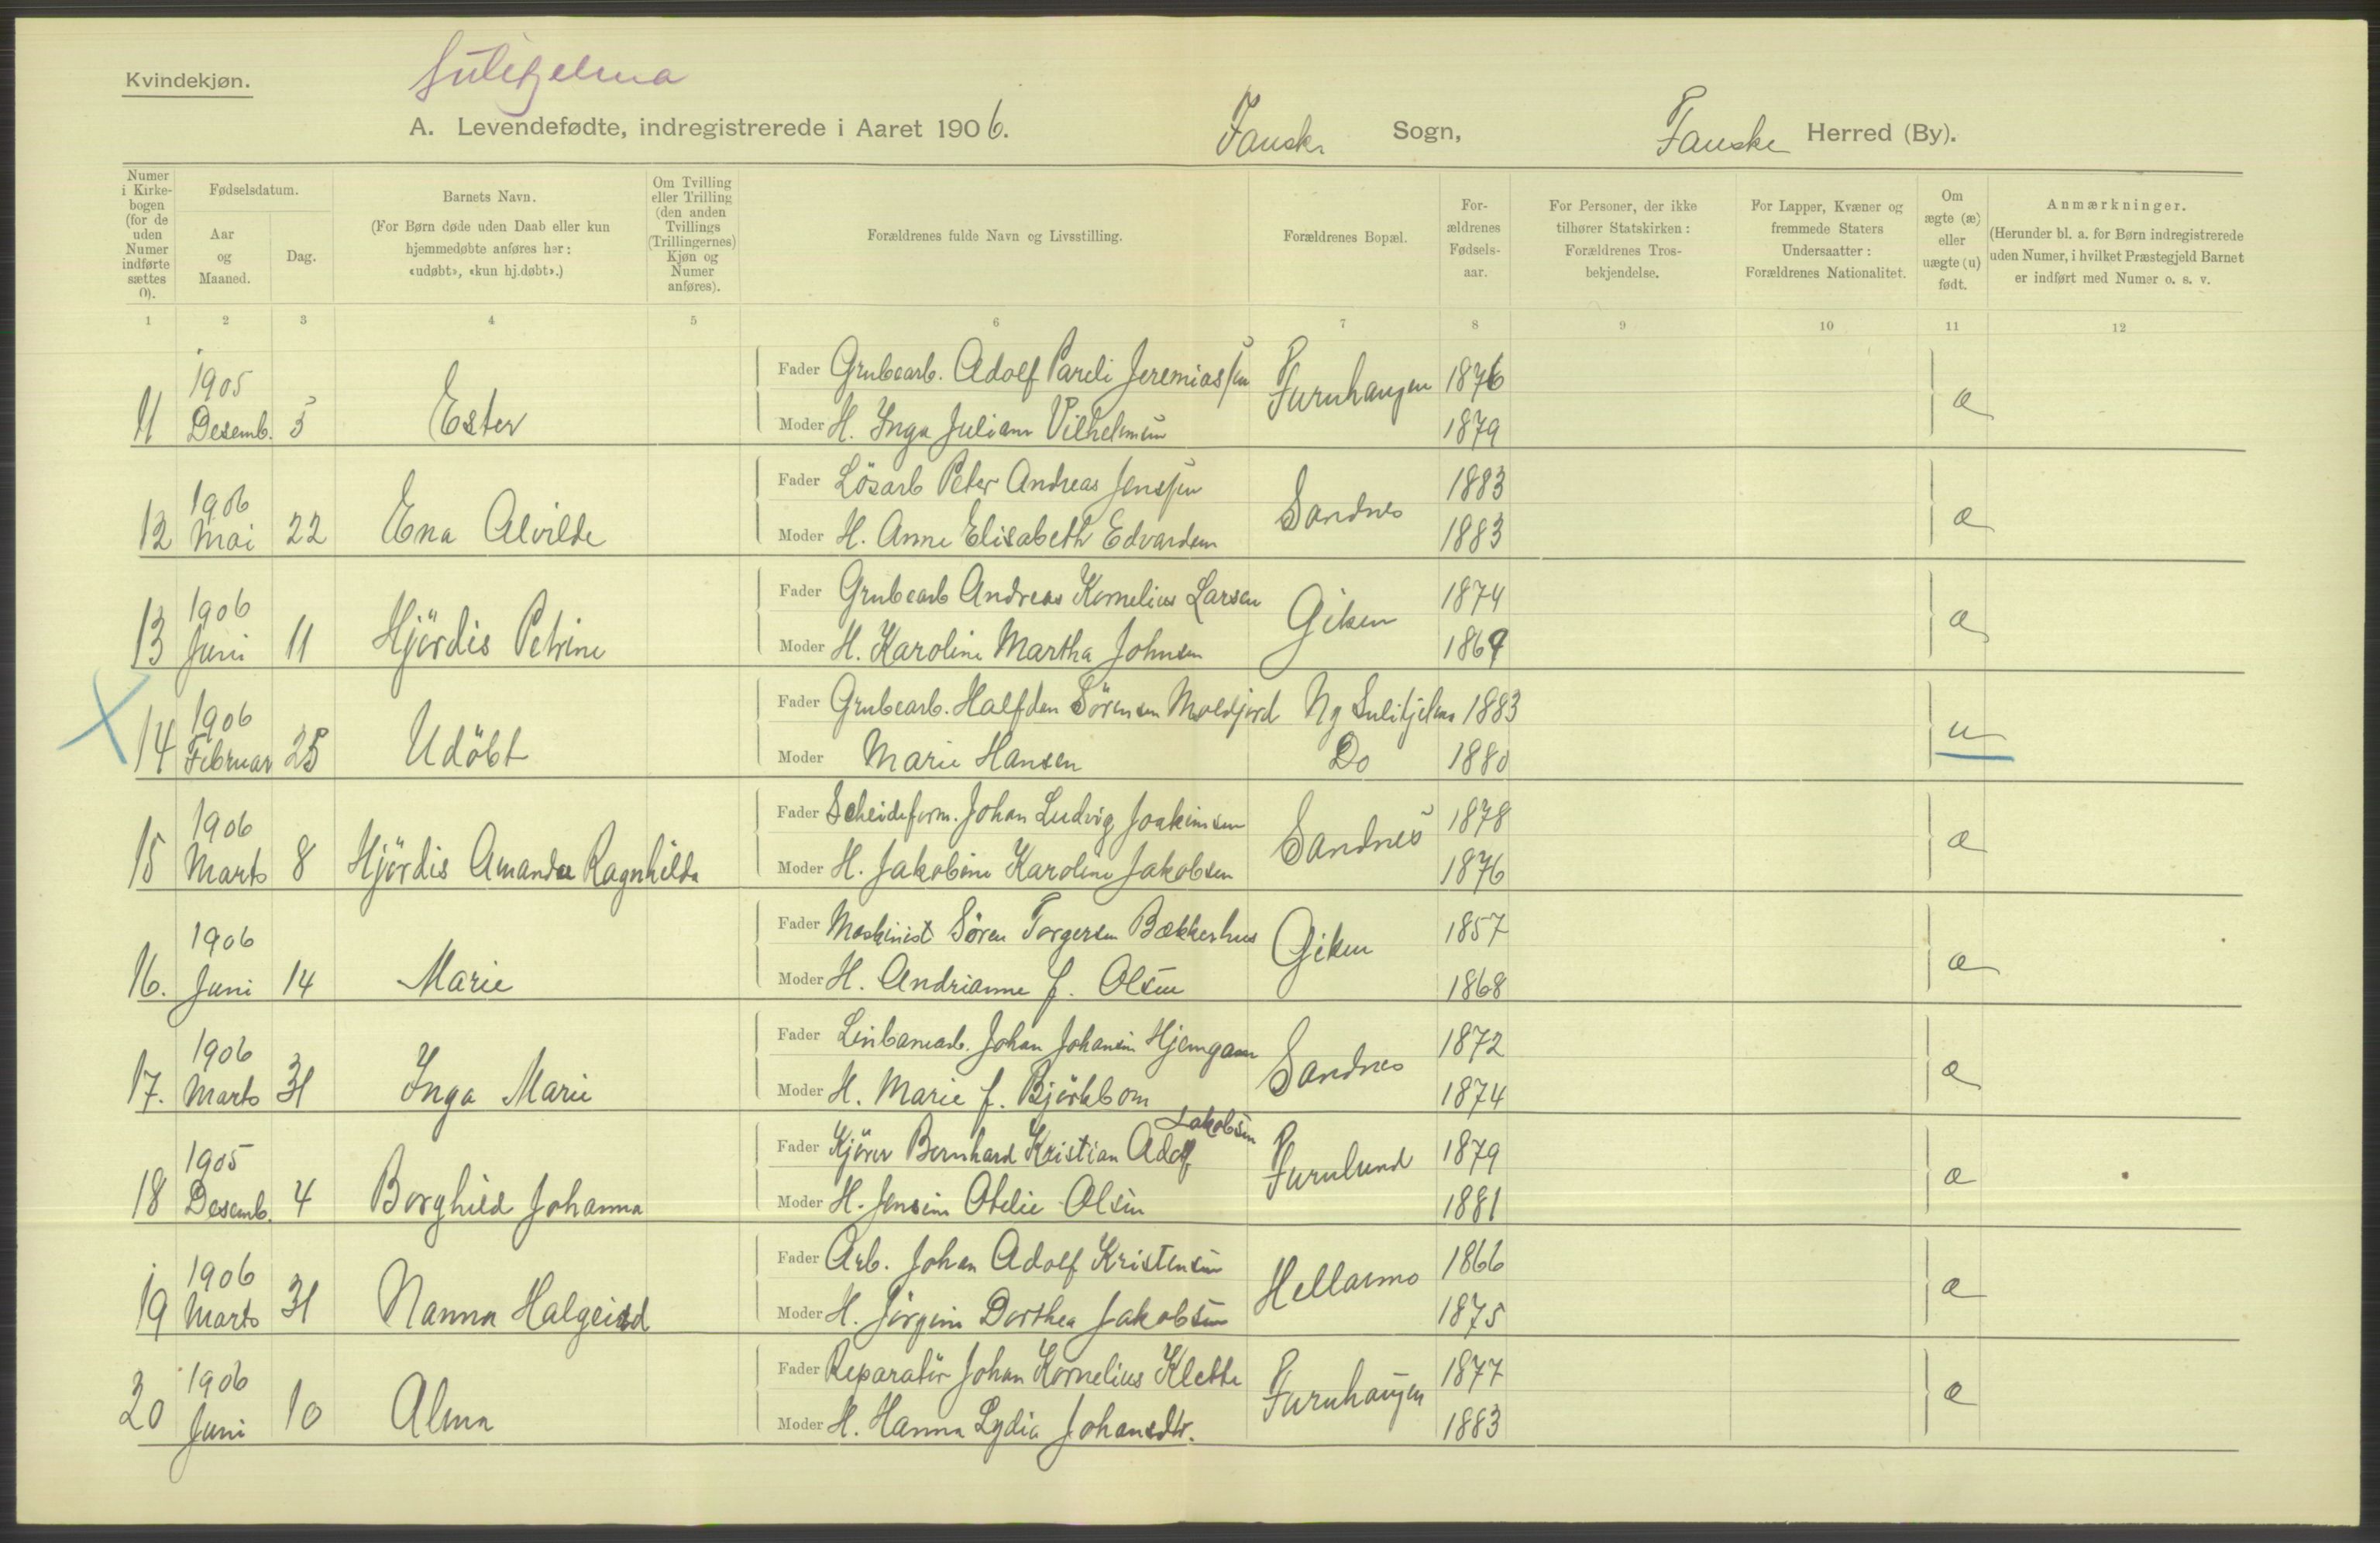 Kvindekjøn.
Sulitjelma
A. Levendefødte, indregistrerede i Aaret 1906. Fauske Sogn, Fauske Herred (By).
Numer i Kirkebogen (for de uden Numer indførte sættes 0).
Fødselsdatum.
Aar og Maaned.
Dag.
Barnets Navn.
(For Børn døde uden Daab eller kun hjemmedøbte anføres her: «udøbt», «kun hj.døbt».)
Om Tvilling eller Trilling (den anden Tvillings (Trillingernes) Kjøn og Numer anføres).
Forældrenes fulde Navn og Livsstilling.
Forældrenes Bopæl.
Forældrenes Fødselsaar.
For Personer, der ikke tilhører Statskirken: Forældrenes Trosbekjendelse.
For Lapper, Kvæner og fremmede Staters Undersaatter: Forældrenes Nationalitet.
Om ægte (æ) eller uægte (u) født.
Anmærkninger.
(Herunder bl. a. for Børn indregistrerede uden Numer, i hvilket Præstegjeld Barnet er indført med Numer o. s. v.
1 2 3 4 5 6 7 8 9 10 11 12
11 1905 Desemb. 5 Ester Fader Grubearb. Adolf Pareli Jeremiassen Furuhaugen 1876 æ
Moder H. Inga Juliane Vilhelmsen 1879
12 1906 Mai 22 Ena Alvilde Fader Lösarb Peter Andreas Jenssen Sandnes 1883 æ
Moder H. Anne Elisabeth Edvardsen 1883
13 1906 Juni 11 Hjördis Petrine Fader Grubearb Andreas Kornelius Larsen Giken 1874 æ
Moder H. Karoline Martha Johnsen 1869
14 1906 Februar 25 Udöbt Fader Grubearb. Halfdan Sörensen Moldjord Ny Sulitjelma 1883 u
Moder Marie Hansen Do 1880
15 1906 Marts 8 Hjördis Amanda Ragnhilda Fader Scheideform. Johan Ludvig Joakimsen Sandnes 1878 æ
Moder H. Jakobine Karoline Jakobsen 1876
16. 1906 Juni 14 Marie Fader Maskinist Sören Torgersen Bækkerhus Giken 1857 æ
Moder H. Andrianne f. Olsen 1868
17. 1906 Marts 31 Inga Marie Fader Linbanearb. Johan Johansen Sandnes 1872 æ
Moder H. Marie f. Björkbom 1874
18 1905 Desemb. 4 Borghild Johanna Fader Kjörer Bernhard Kristian Adolf Jakobsen Furulund 1879 æ
Moder H. Jensine Otelie Olsen 1881
19 1906 Marts 31 Nanna Halgerd Fader Arb. Johan Adolf Kristensen Hellarmo 1866 æ
Moder H. Jörgine Dorthea Jakobsen 1875
20 1906 Juni 10 Alma Fader Reparatör Johan Kornelius Klette Furuhaugen 1877 æ
Moder H. Hanna Lydia Johansdtr. 1883